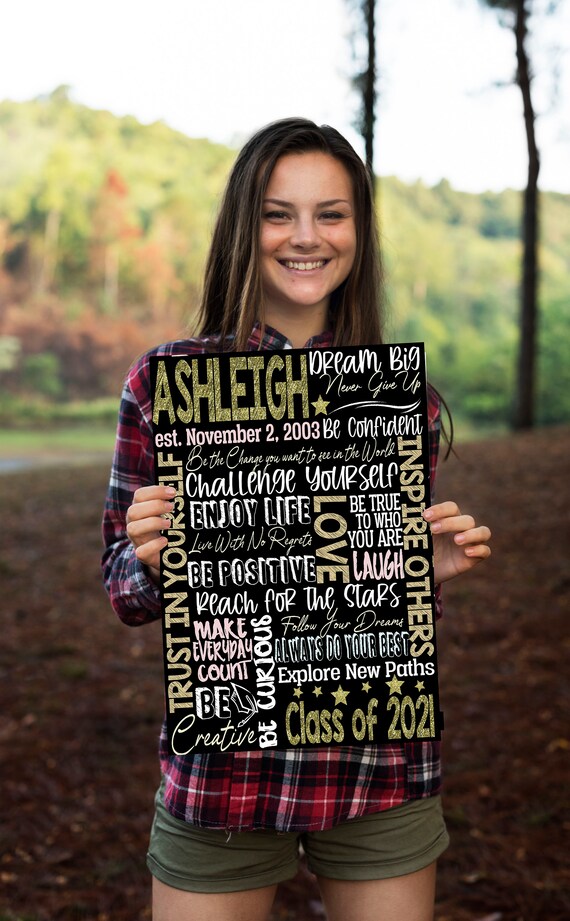 ASHLEIGH
DREAM BIG
Never Give Up
est. November 2, 2003
Be Confident
Be the Change you want to see in the World
Challenge Yourself
TRUST IN YOURSELF
INSPIRE OTHERS
ENJOY LIFE
LOVE
BE TRUE
TO WHO
YOU ARE
Live With No Regrets
BE POSITIVE
LAUGH
Reach for the Stars
MAKE
EVERYDAY
COUNT
BE CURIOUS
Follow Your Dreams
ALWAYS DO YOUR BEST
Explore New Paths
BE
Creative
Class of 2021